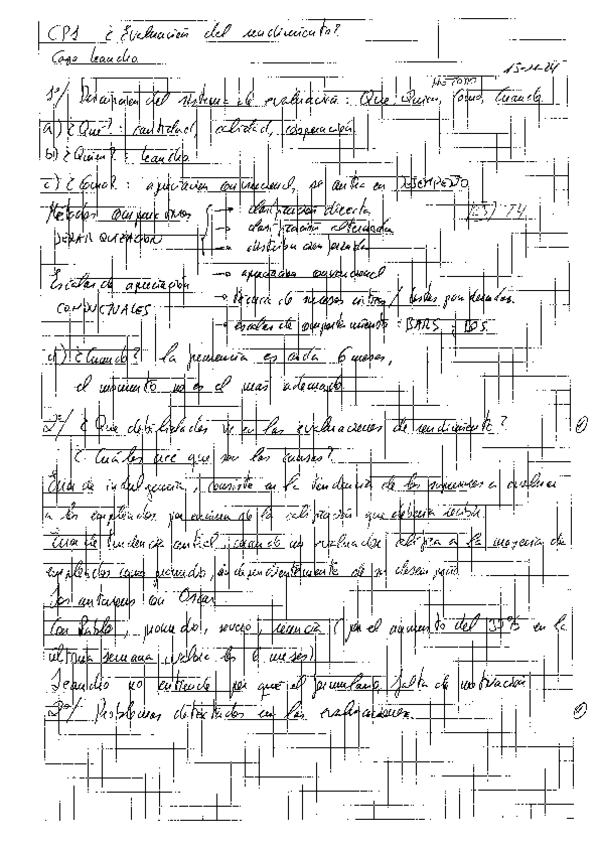 CP1 ¿Evaluación del rendimiento?
Caso Leandro
15-11-24
1º/ Descripción del sistema de evaluación: Que, Quien, Como, Cuando
a) ¿Que?: cantidad, calidad, cooperación
b) ¿Quien?: Leandro
c) ¿Como?: apreciación convencional, se centra en DESEMPEÑO
Métodos comparativos → clasificación directa
JERARQUIZACIÓN → clasificación alternada
→ distribución forzada
Escalas de apreciación → apreciación convencional
CONDUCTUALES → técnica de sucesos críticos / listas ponderadas
→ escalas de comportamiento: BARS y BOS
d) ¿Cuando? la frecuencia es cada 6 meses,
el momento no es el mas adecuado
2º/ ¿Que debilidades ve en las evaluaciones de rendimiento?
¿Cuáles cree que son las causas?
Error de indulgencia, consiste en la tendencia de los supervisores a evaluar
a los empleados por encima de la calificación que debería recibir.
Error de tendencia central, cuando un evaluador califica a la mayoria de
empleados como promedio, independientemente de su desempeño
con Oscar
Con Pablo, promedio, recencia (por el aumento del 35% en la
ultima semana, sobre los 6 meses)
Leandro no entiende por qué el formulario, falta de motivación
2º/ Problemas detectados en las evaluaciones.